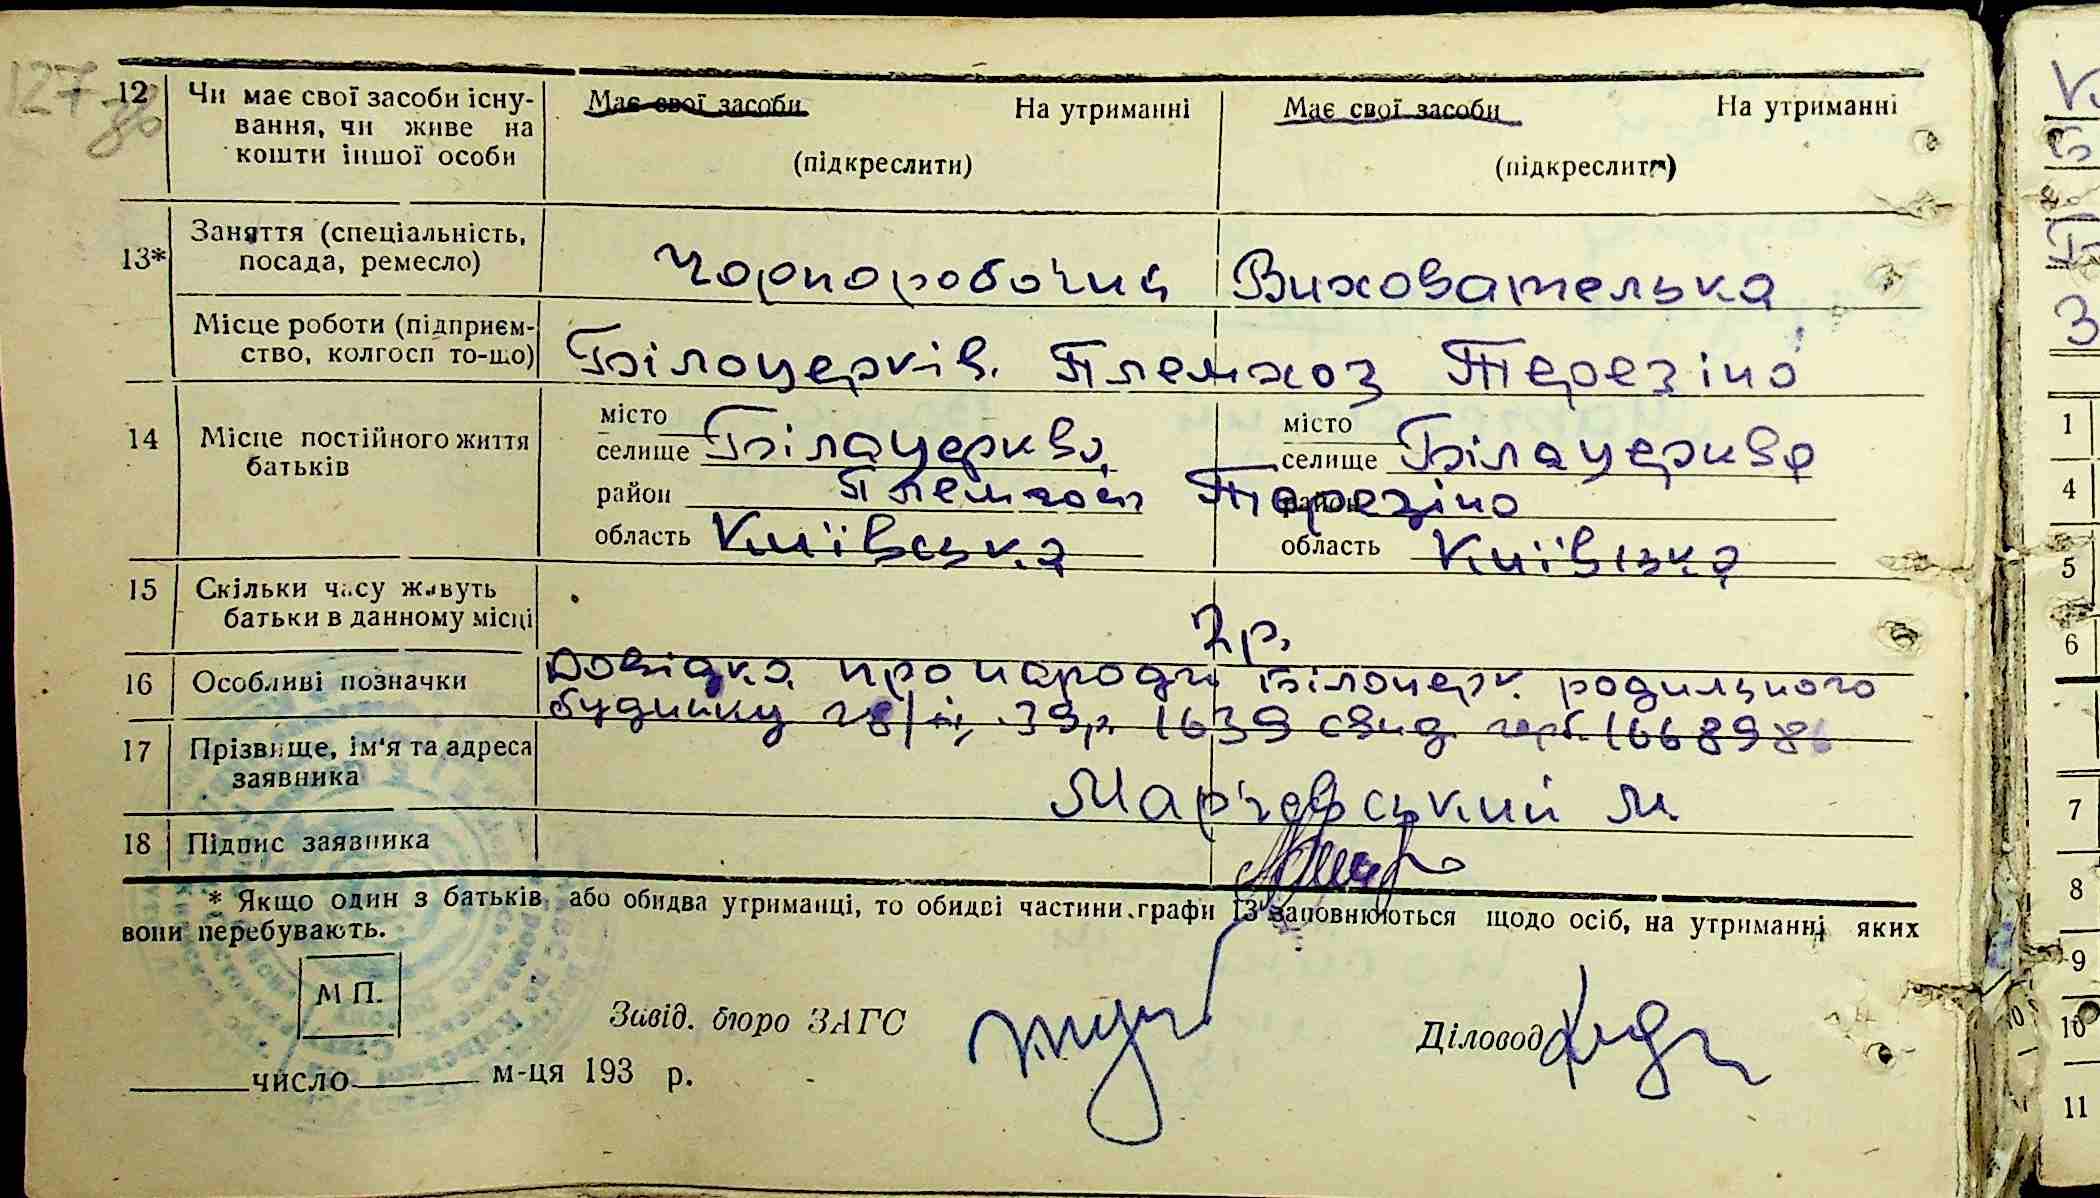 127 зв
12 Чи має свої засоби існу- Має свої засоби На утриманні Має свої засоби На утриманні
вання, чи живе на
кошти іншої особи (підкреслити) (підкреслити)
13* Заняття (спеціальність,
посада, ремесло) Чорноробочий Вихователька
Місце роботи (підприєм-
ство, колгосп то-що) Білоцерків. Племхоз Терезіно
14 Місце постійного життя
батьків
місто місто
селище Білацерква селище Білацерква
район Племхоз Терезіно район
область Київська область Київська
15 Скільки часу живуть
батьки в данному місці 2 р.
16 Особливі позначки Довідка про народж Білоцерк. родильного
будинку 39 р 1639 свид. 166898
17 Прізвище, ім'я та адреса
заявника Марчевський М
18 Підпис заявника
* Якщо один з батьків, або обидва утриманці, то обидві частини графи 13 заповнюються щодо осіб, на утриманні яких
вони перебувають.
М П.
Завід. бюро ЗАГС Діловод
число м-ця 193 р.
1
4
5
6
7
8
9
10
11